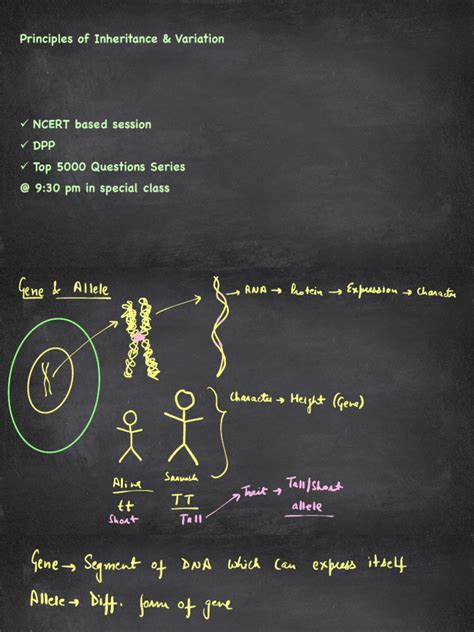 Principles of Inheritance & Variation
✓ NCERT based session
✓ DPP
✓ Top 5000 Questions Series
@ 9:30 pm in special class
Gene & Allele
→ RNA → Protein → Expression → Character
Character → Height (Gene)
Alive
tt
Short
TT
Tall
Trait → Tall/Short
allele
Gene → Segment of DNA which can express itself
Allele → Diff. form of gene